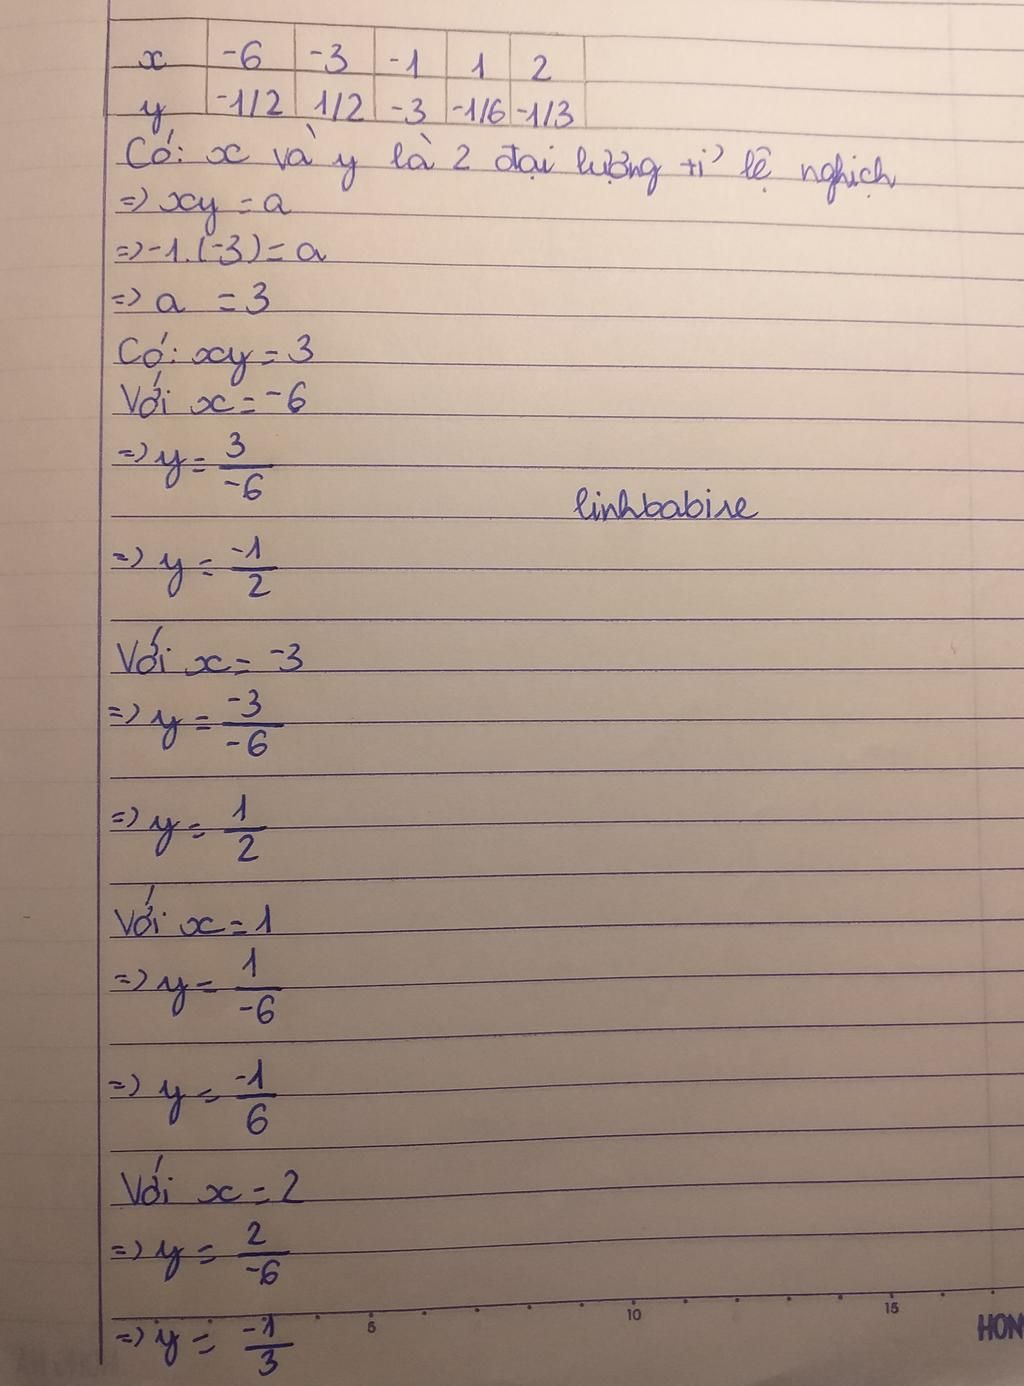 x -6 -3 -1 1 2
y -1/2 1/2 -3 -1/6 -1/3
Có: x và y là 2 đại lượng tỉ lệ nghịch
=> xy = a
=> -1.(-3) = a
=> a = 3
Có: xy = 3
Với x = -6
=> y = 3/-6
linhbabire
=> y = -1/2
Với x = -3
=> y = -3/-6
=> y = 1/2
Với x = 1
=> y = 1/-6
=> y = -1/6
Với x = 2
=> y = 2/-6
5 10 15
HON
=> y = -1/3